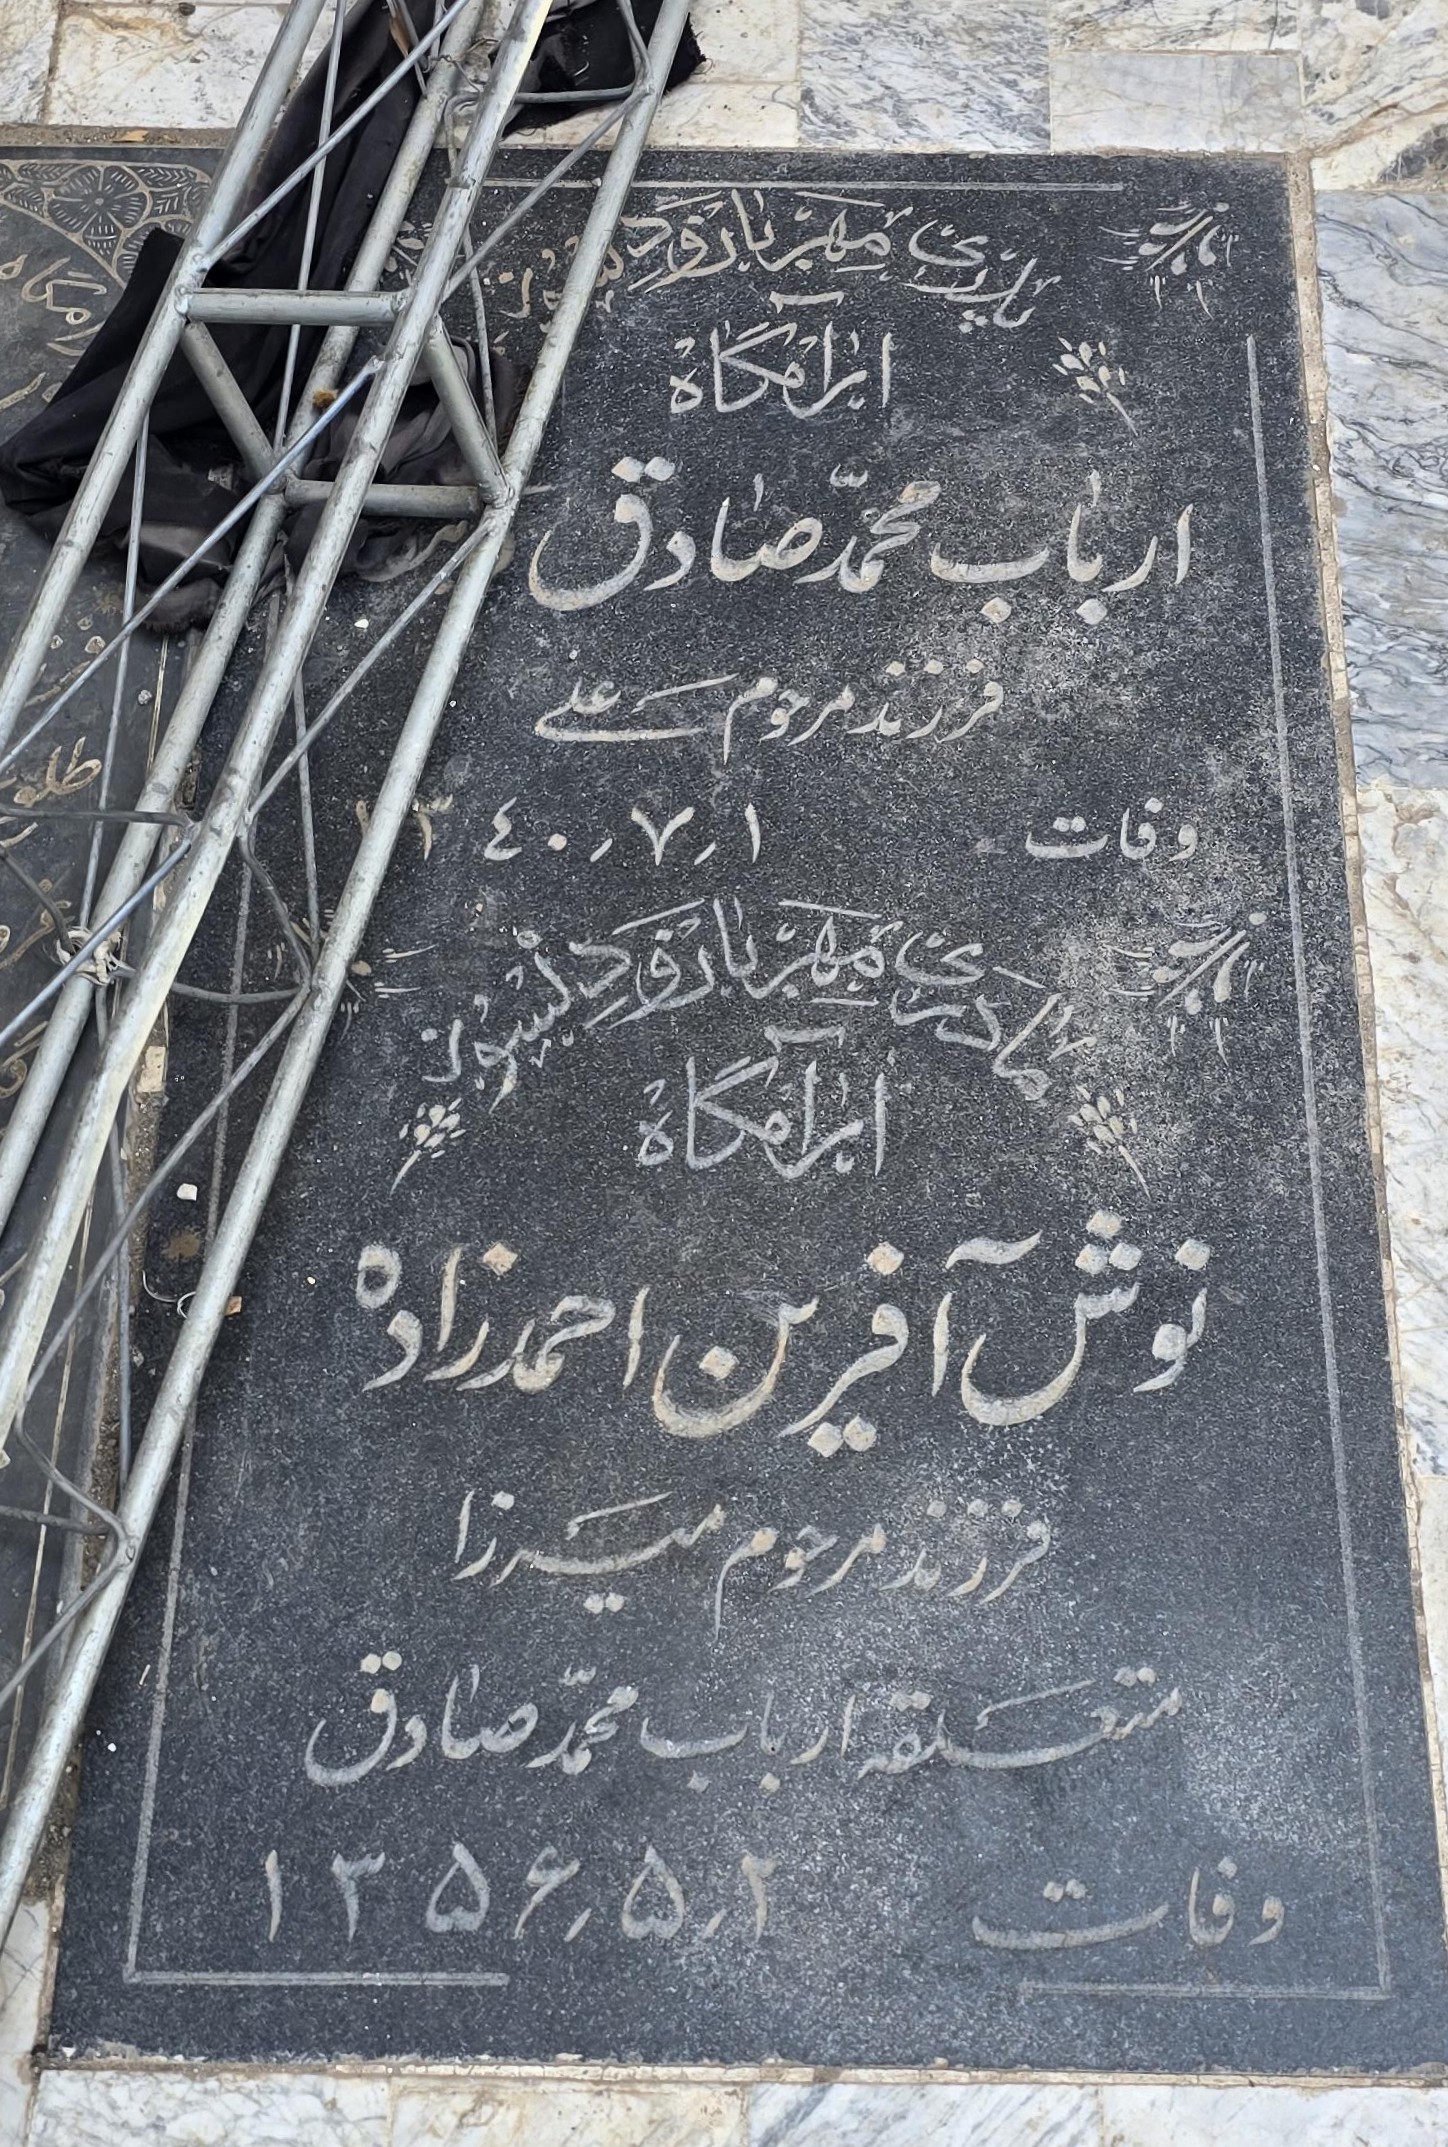 پدری مهربان و دلسوز
آرامگاه
ارباب محمّد صادق
فرزند مرحوم علی
وفات ۱٫۷٫۴۰
مادری مهربان و دلسوز
آرامگاه
نوش آفرین احمدزاده
فرزند مرحوم میرزا
متعلقه ارباب محمّد صادق
وفات ۱۳۵۶٫۵٫۲